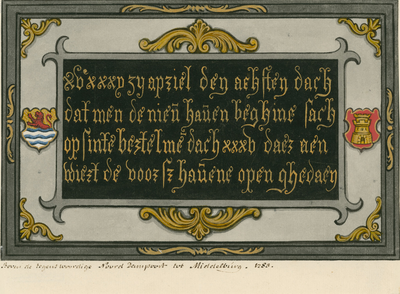 XVᶜ xxxij zij april den achsten dach
dat men de nieū hauen beghine sach
op sinte bertelmeˢ dach xxxv daer aen
wiert de voor sz hauene open ghedaen
Boven de tegenwoordige Noord Dampoort tot Middelburg. 1785.